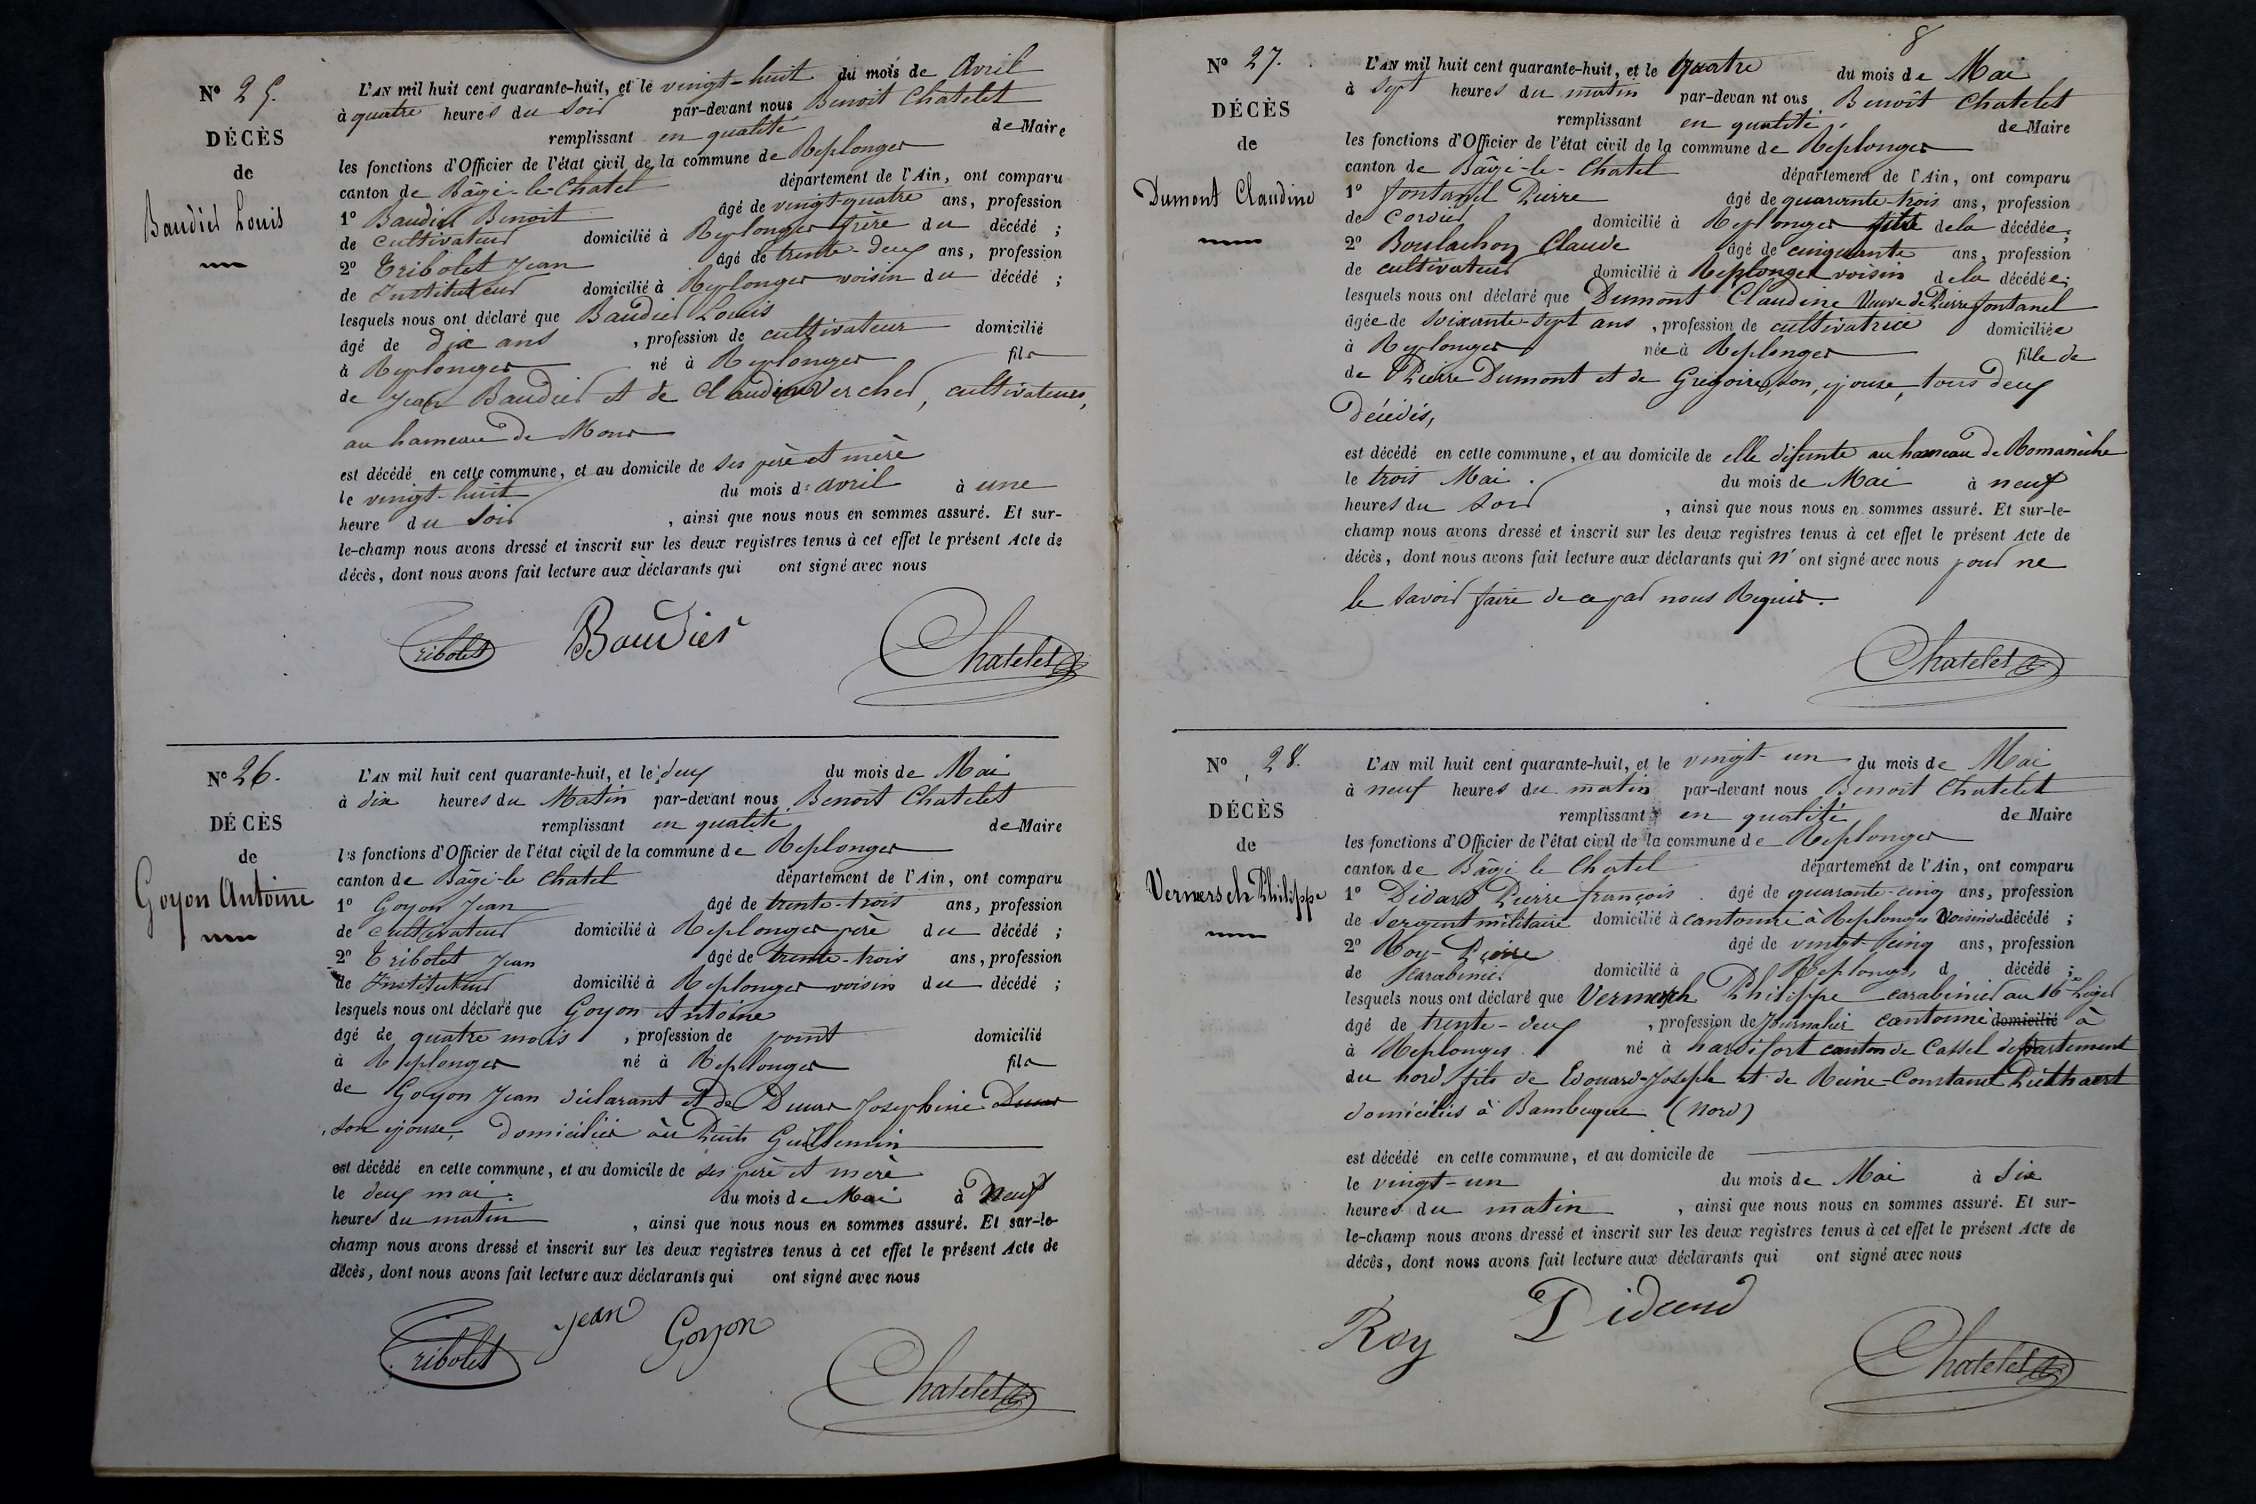 N° 25.
DÉCÈS
de
Baudiel Louis
L'AN mil huit cent quarante-huit, et le vingt-huit du mois de Avril
à quatre heures du soir par-devant nous Benoit Chatelet
remplissant en qualité de Maire
les fonctions d'Officier de l'état civil de la commune de Replonges
canton de Bâgé-le-Chatel département de l'Ain, ont comparu
1° Baudiel Benoit âgé de vingt-quatre ans, profession
de cultivateur domicilié à Replonges frère du décédé ;
2° Tribolet Jean âgé de trente-deux ans, profession
de Instituteur domicilié à Replonges voisin du décédé ;
lesquels nous ont déclaré que Baudiel Louis
âgé de dix ans , profession de cultivateur domicilié
à Replonges né à Replonges fils
de Jean Baudiel et de Claudine Vercher, cultivateurs,
au hameau de Mons
est décédé en cette commune, et au domicile de ses père et mère
le vingt-huit du mois d' avril à une
heure du soir , ainsi que nous nous en sommes assuré. Et sur-
le-champ nous avons dressé et inscrit sur les deux registres tenus à cet effet le présent Acte de
décès, dont nous avons fait lecture aux déclarants qui ont signé avec nous
Tribolet Baudier Chatelet
N° 26.
DÉCÈS
de
Goyon Antoine
L'AN mil huit cent quarante-huit, et le deux du mois de Mai
à dix heures du Matin par-devant nous Benoit Chatelet
remplissant en qualité de Maire
les fonctions d'Officier de l'état civil de la commune de Replonges
canton de Bâgé-le Chatel département de l'Ain, ont comparu
1° Goyon Jean âgé de trente-trois ans, profession
de cultivateur domicilié à Replonges père du décédé ;
2° Tribolet Jean âgé de trente-trois ans, profession
de Instituteur domicilié à Replonges voisin du décédé ;
lesquels nous ont déclaré que Goyon Antoine
âgé de quatre mois , profession de point domicilié
à Replonges né à Replonges fils
de Goyon Jean déclarant et de Josephine
son épouse, domiciliés au Puits Guillemin
est décédé en cette commune, et au domicile de ses père et mère
le deux mai. du mois de Mai à Neuf
heures du matin , ainsi que nous nous en sommes assuré. Et sur-le-
champ nous avons dressé et inscrit sur les deux registres tenus à cet effet le présent Acte de
décès, dont nous avons fait lecture aux déclarants qui ont signé avec nous
Tribolet Jean Goyon Chatelet
8
N° 27.
DÉCÈS
de
Dumont Claudine
L'AN mil huit cent quarante-huit, et le quatre du mois de Mai
à sept heures du matin par-devan nt ous Benoît Chatelet
remplissant en qualité, de Maire
les fonctions d'Officier de l'état civil de la commune de Replonges
canton de Bâgé-le-Chatel département de l'Ain, ont comparu
1° fontanel Pierre âgé de quarante-trois ans, profession
de Cordier domicilié à Replonges dela décédée ;
2° Boulachon Claude âgé de cinquante ans, profession
de cultivateur domicilié à Replonges voisin dela décédée ;
lesquels nous ont déclaré que Dumont Claudine Veuve de Pierre fontanel
âgée de soixante-sept ans , profession de cultivatrice domiciliée
à Replonges née à Replonges fille de
de Pierre Dumont et de Gregoire, son, épouse, tous deux
Décédés,
est décédé en cette commune, et au domicile de elle défunte au hameau de Romanèche
le trois Mai . du mois de Mai à neuf
heures du soir , ainsi que nous nous en sommes assuré. Et sur-le-
champ nous avons dressé et inscrit sur les deux registres tenus à cet effet le présent Acte de
décès, dont nous avons fait lecture aux déclarants qui n' ont signé avec nous pour ne
le savoir faire de ce par nous Requis.
Chatelet
N° 28.
DÉCÈS
de
Vermersch Philippe
L'AN mil huit cent quarante-huit, et le vingt-un du mois de Mai
à neuf heures du matin par-devant nous Benoit Chatelet
remplissant en qualité de Maire
les fonctions d'Officier de l'état civil de la commune de Replonges
canton de Bâgé le Chatel département de l'Ain, ont comparu
1° Didard Pierre françois âgé de quarante-cinq ans, profession
de Sergent militaire domicilié à cantonné à Replonges Voisin du décédé ;
2° Roy Pierre âgé de vingt-cinq ans, profession
de Carabinier domicilié à Replonges d décédé ;
lesquels nous ont déclaré que Vermersch Philippe carabinier au 16e Léger
âgé de trente-deux , profession de Journalier cantonné domicilié à
à Replonges né à hardifort canton de Cassel département
du nord fils de Edouard-Joseph et de Reine-Constance
domiciliés à Bambeque (Nord)
est décédé en cette commune, et au domicile de
le vingt-un du mois de Mai à Six
heures du matin , ainsi que nous nous en sommes assuré. Et sur-
le-champ nous avons dressé et inscrit sur les deux registres tenus à cet effet le présent Acte de
décès, dont nous avons fait lecture aux déclarants qui ont signé avec nous
Roy Didard Chatelet